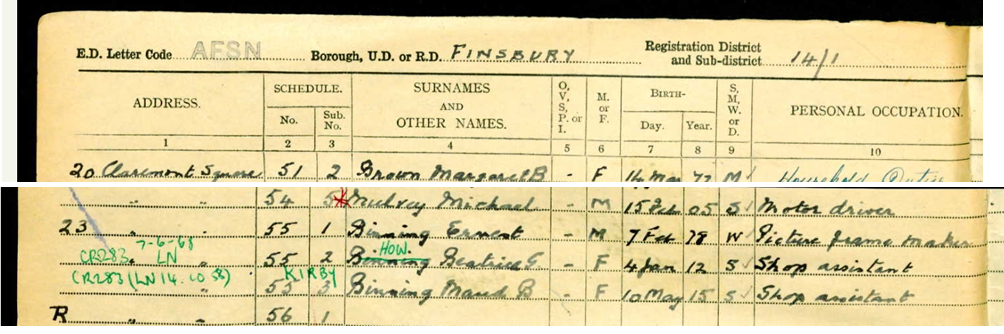 E.D. Letter Code AFSN Borough, U.D. or R.D. FINSBURY Registration District and Sub-district 14/1
ADDRESS. SCHEDULE. No. Sub. No. SURNAMES AND OTHER NAMES. O, V, S, P, or I. M. or F. BIRTH- Day. Year. S, M, W, or D. PERSONAL OCCUPATION.
1 2 3 4 5 6 7 8 9 10
20 Claremont Square 51 2 Brown Margaret B - F 14 Mar 77 M Household Duties
" " 54 5 Mulvey Michael - M 15 Feb 05 S Motor driver
23 " " 55 1 Binning Ernest - M 7 Feb 78 W Picture frame maker
7-6-68 HOW.
CR283 LN 55 2 Binning Beatrice E. - F 4 Jan 12 S Shop assistant
(CR283 (LN 14.10.58) KIRBY
" 55 3 Binning Maud B - F 10 May 15 S Shop assistant
R " " 56 1